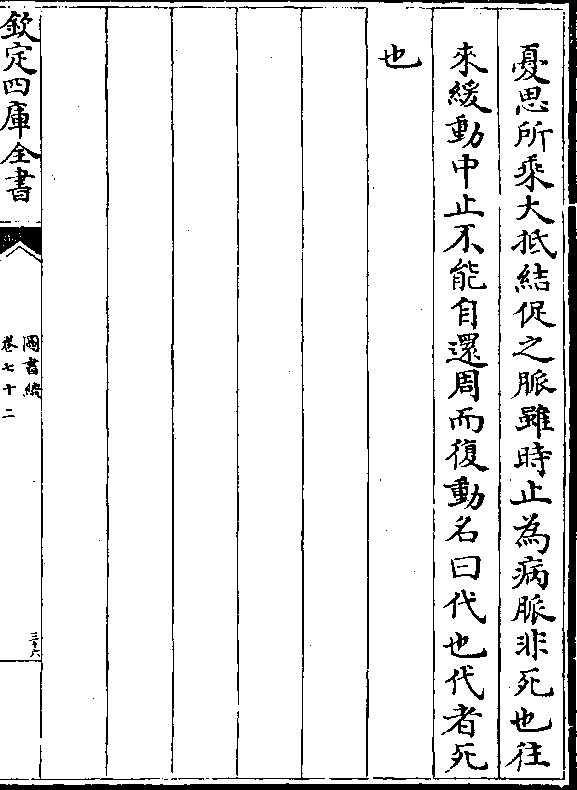 憂思所乘大抵結促之脈雖時止為病脈非死也往
來緩動中止不能自還周而復動名曰代也代者死
也
欽定四庫全書
圖書編
卷七十二
三十六